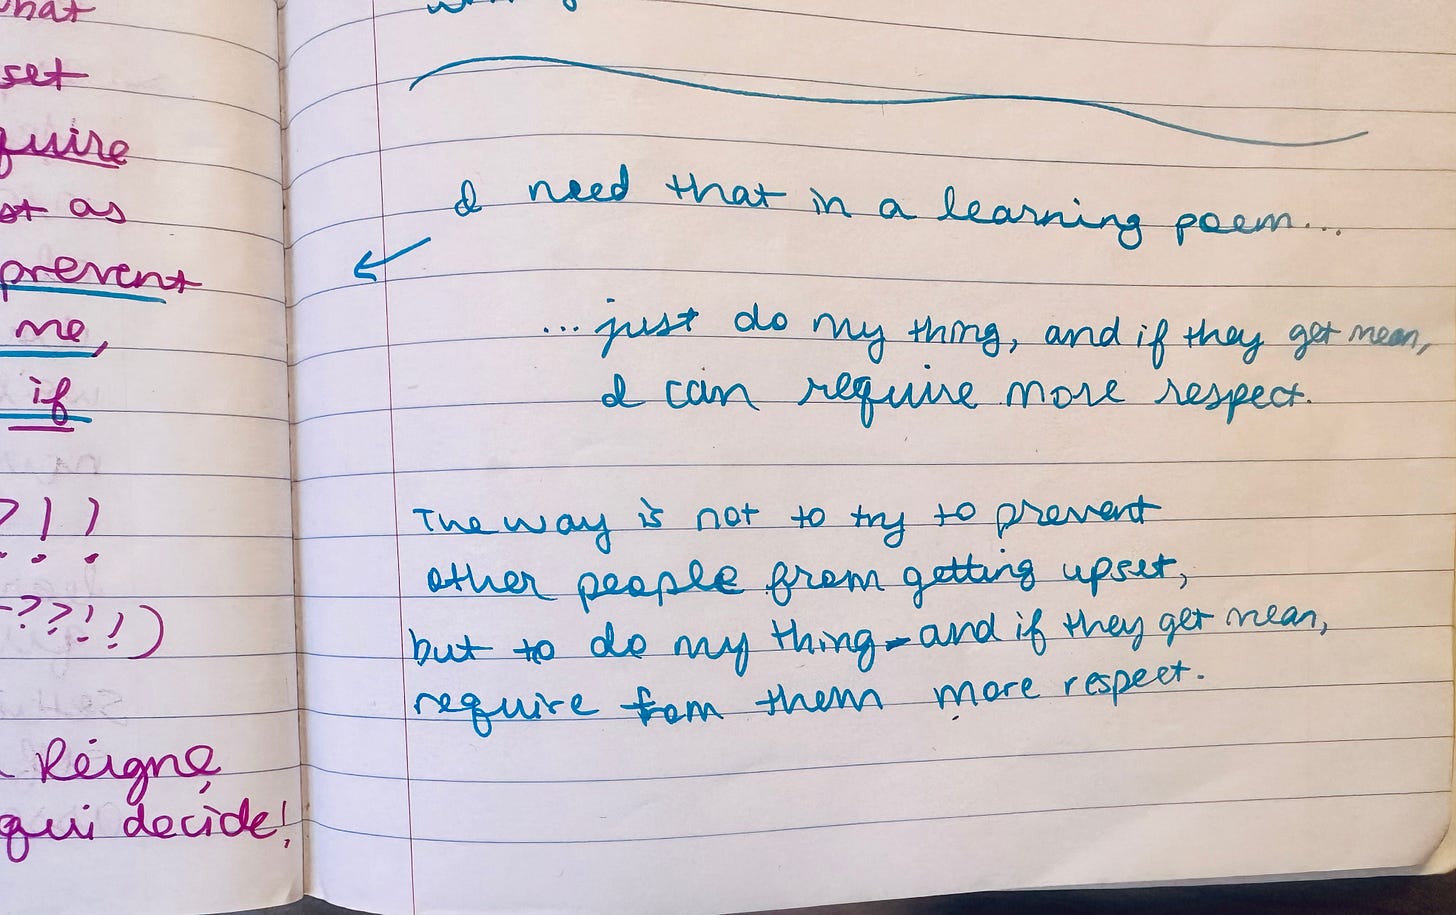 set
as
prevent
me,
if
? ! )
-??!!)
Reigne
qui decide!
I need that in a learning poem...
... just do my thing, and if they get mean,
I can require more respect.
The way is not to try to prevent
other people from getting upset,
but to do my thing - and if they get mean,
require from them more respect.